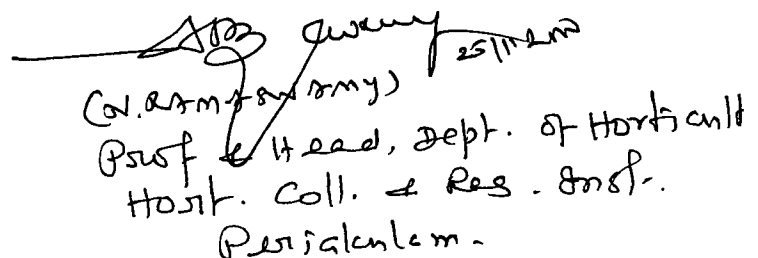 (N. RAMASWAMY)
Prof & Head, Dept. of Horticult
Hort. Coll. & Res. Inst.
Periakulam.